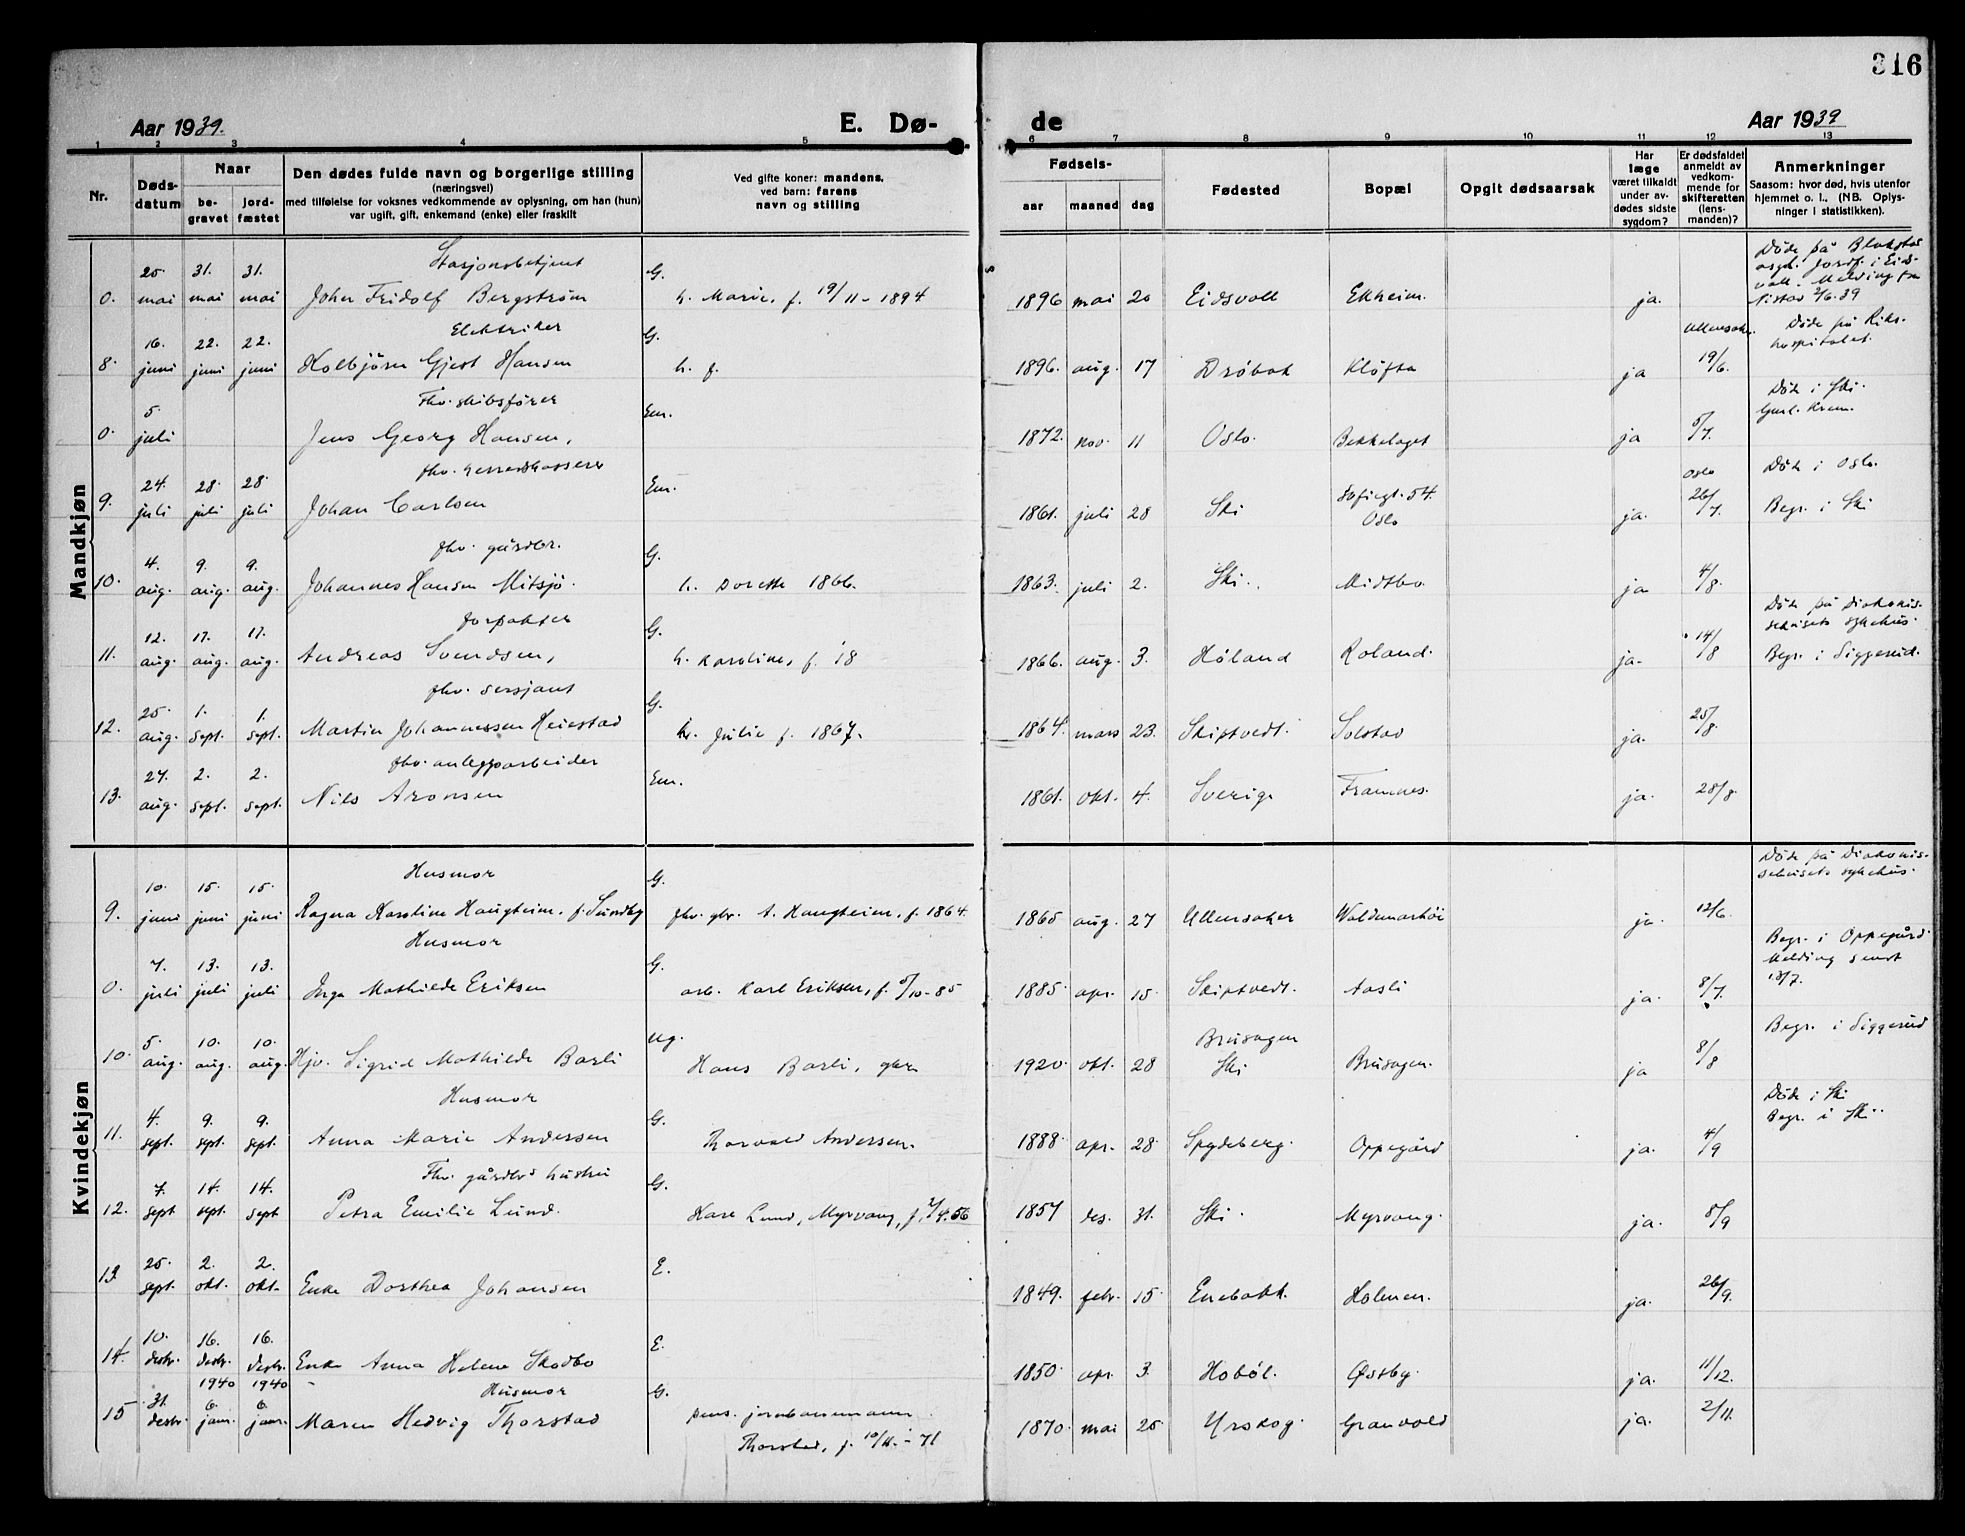 316
Aar 1939.
E. Dø-
de
Aar 1939
1 2 3 4 5 6 7 8 9 10 11 12 13
Nr.
Døds-
datum
Naar
be-
gravet
jord-
fæstet
Den dødes fulde navn og borgerlige stilling
(næringsvei)
med tilføielse for voksnes vedkommende av oplysning, om han (hun)
var ugift, gift, enkemand (enke) eller fraskilt
Ved gifte koner: mandens,
ved barn: farens
navn og stilling
Fødsels-
aar maaned dag
Fødested
Bopæl
Opgit dødsaarsak
Har
læge
været tilkaldt
under av-
dødes sidste
sygdom?
Er dødsfaldet
anmeldt av
vedkom-
mende for
skifteretten
(lens-
manden)?
Anmerkninger
Saasom: hvor død, hvis utenfor
hjemmet o. l., (NB. Oplys-
ninger i statistikken).
Mandkjøn
Stasjonsbetjent
0. 25. mai 31. mai 31. mai Johan Fridolf Bergstrøm G. h. Marie, f. 19/11-1894 1896 mai 20 Eidsvoll Ekheim. ja. Døde på Blakstad
asyl. Jordf. i Eids-
voll. Melding fra
2/6.39
Elektriker
8. 16. juni 22. juni 22. juni Kolbjørn Gjest Hansen G. h. f. 1896. aug. 17 Drøbak Kløfta ja Ullensaker. 19/6. Døde på Riks-
hospitalet.
Fhv. skibsfører
0. 5. juli Jens Georg Hansen, Em. 1872. nov. 11 Oslo. Bekkelaget ja 5/7. Døde i Ski.
Krem.
fhv. herredskasserer
9. 24. juli 28. juli 28. juli Johan Carlsen Em. 1861. juli 28 Ski Sofiegt. 54. Oslo ja. Oslo 26/7. Døde i Oslo.
Begr. i Ski
fhv. gårdbr.
10. 4. aug. 9. aug. 9. aug. Johannes Hansen Mitsjø. G. h. Dorette 1866. 1863. juli 2. Ski. Midtbo ja 4/8
forpakter
11. 12. aug. 17. aug. 17. aug. Andreas Svendsen, G. h. Karoline, f. 18 1866. aug. 3. Høland Roland. ja. 14/8 Døde på Diakonis-
sehusets sykehus.
Begr. i Siggerud.
fhv. sersjant
12. 25. aug. 1. sept. 1. sept. Martin Johannessen Heiestad G. h. Julie f. 1867. 1864. mars 23. Skiptvedt. Solstad ja. 25/8.
fhv. anleggsarbeider
13. 27. aug. 2. sept. 2. sept. Nils Aronsen Em. 1861. okt. 4. Sverige Framnes. ja. 28/8.
Kvindekjøn
Husmor
9. 10. juni 15. juni 15. juni Ragna Karoline Haugheim, f. Sundby G. fhv. gbr. A. Haugheim, f. 1864. 1865 aug. 27 Ullensaker Waldemarhøi ja. 12/6. Døde på Diakonis-
sehusets sykehus.
Husmor
0. 7. juli 13. juli 13. juli Inga Mathilde Eriksen G. arb. Karl Eriksen, f. 5/10-85 1885. apr. 15. Skiptvedt. Aasli ja. 8/7. Begr. i Oppegård.
Melding sendt
13/7.
10. 5. aug. 10. aug. 10. aug. Hjv. Sigrid Mathilde Barli Ug. Hans Barli, gbr. 1920. okt. 28 Brusagen Ski Brusagen. ja 8/8 Begr. i Siggerud
Husmor
11. 4. sept. 9. sept. 9. sept. Anna Marie Andersen G. Thorvald Andersen. 1888. apr. 28. Spydeberg. Oppegård ja. 4/9 Døde i Ski
Begr. i Ski.
Fhv. gårdbrs hustru
12. 7. sept 14. sept. 14. sept Petra Emilie Lund. G. Karl Lund, Myrvang, f. 7/4.56 1857 des. 31. Ski. Myrvang. ja. 8/9
13 25. sept. 2. okt. 2. okt. Enke Dorthea Johansen E. 1849. febr. 15. Enebakk. Holmen. ja. 26/9.
14. 10. desbr. 16. desbr. 16. desbr. Enke Anna Helene Skodbo E. 1850. apr. 3. Hobøl. Østby. ja. 11/12.
Husmor
15 31. desbr. 1940 6. janr. 1940 6. janr. Maren Hedvig Thorstad G. pens. jernbanemann
Thorstad, f. 10/11.-71 1870. mai 25 Urskog. Granvold ja. 2/11.